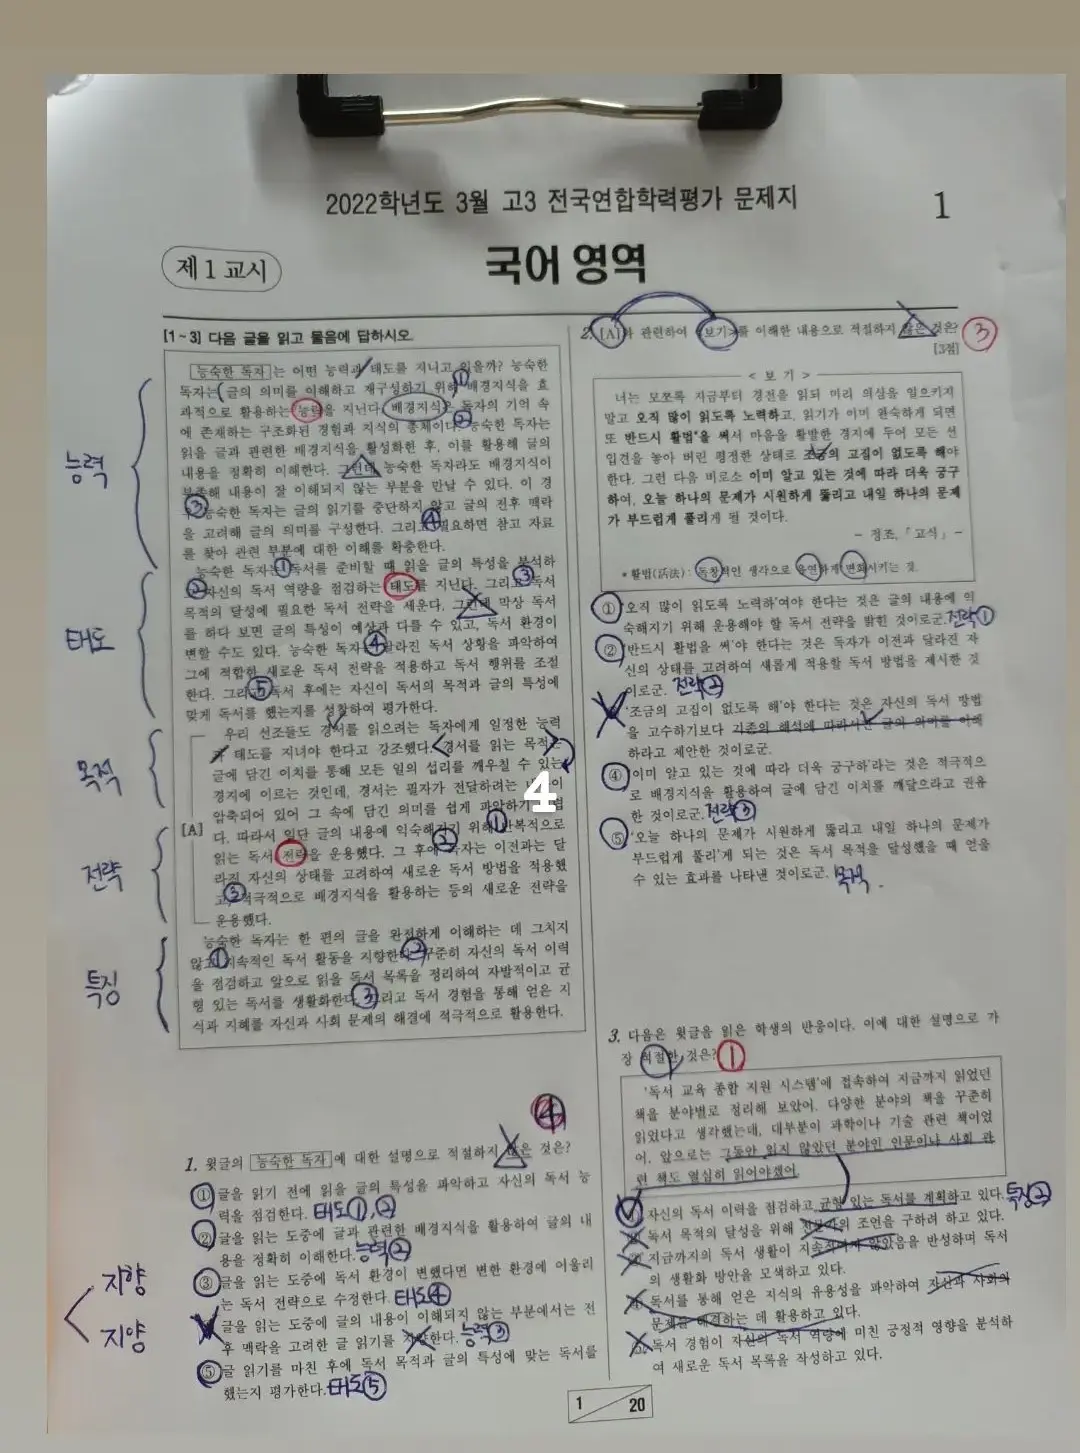 2022학년도 3월 고3 전국연합학력평가 문제지
1
제 1 교시
국어 영역
[1~3] 다음 글을 읽고 물음에 답하시오.
능숙한 독자는 어떤 능력과 태도를 지니고 있을까? 능숙한
독자는 글의 의미를 이해하고 재구성하기 위해 배경지식을 효
과적으로 활용하는 능력을 지닌다. 배경지식은 독자의 기억 속
에 존재하는 구조화된 경험과 지식의 총체이다. 능숙한 독자는
읽을 글과 관련한 배경지식을 활성화한 후, 이를 활용해 글의
내용을 정확히 이해한다. 그런데 능숙한 독자라도 배경지식이
부족해 내용이 잘 이해되지 않는 부분을 만날 수 있다. 이 경
능숙한 독자는 글의 읽기를 중단하지 않고 글의 전후 맥락
을 고려해 글의 의미를 구성한다. 그리고 필요하면 참고 자료
를 찾아 관련 부분에 대한 이해를 확충한다.
능숙한 독자는 독서를 준비할 때 읽을 글의 특성을 분석하
자신의 독서 역량을 점검하는 태도를 지닌다. 그리고 독서
목적의 달성에 필요한 독서 전략을 세운다. 그런데 막상 독서
를 하다 보면 글의 특성이 예상과 다를 수 있고, 독서 환경이
변할 수도 있다. 능숙한 독자는 달라진 독서 상황을 파악하여
그에 적합한 새로운 독서 전략을 적용하고 독서 행위를 조절
한다. 그리고 독서 후에는 자신이 독서의 목적과 글의 특성에
맞게 독서를 했는지를 성찰하여 평가한다.
우리 선조들도 경서를 읽으려는 독자에게 일정한 능력
과 태도를 지녀야 한다고 강조했다. 경서를 읽는 목적은
글에 담긴 이치를 통해 모든 일의 섭리를 깨우칠 수 있는
경지에 이르는 것인데, 경서는 필자가 전달하려는
압축되어 있어 그 속에 담긴 의미를 쉽게 파악하기
[A]
다. 따라서 일단 글의 내용에 익숙해지기 위해 반복적으로
읽는 독서 전략을 운용했다. 그 후에 독자는 이전과는 달
라진 자신의 상태를 고려하여 새로운 독서 방법을 적용했
고, 적극적으로 배경지식을 활용하는 등의 새로운 전략을
운용했다.
능숙한 독자는 한 편의 글을 완전하게 이해하는 데 그치지
않고 지속적인 독서 활동을 지향한다. 꾸준히 자신의 독서 이력
을 점검하고 앞으로 읽을 독서 목록을 정리하여 자발적이고 균
형 있는 독서를 생활화한다. 그리고 독서 경험을 통해 얻은 지
식과 지혜를 자신과 사회 문제의 해결에 적극적으로 활용한다.
능력
태도
목적
전략
특징
4
④
1. 윗글의 능숙한 독자에 대한 설명으로 적절하지 않은 것은?
① 글을 읽기 전에 읽을 글의 특성을 파악하고 자신의 독서 능
력을 점검한다. 태도①,②
② 글을 읽는 도중에 글과 관련한 배경지식을 활용하여 글의 내
용을 정확히 이해한다. 능력②
③ 글을 읽는 도중에 독서 환경이 변했다면 변한 환경에 어울리
는 독서 전략으로 수정한다. 태도④
글을 읽는 도중에 글의 내용이 이해되지 않는 부분에서는 전
후 맥락을 고려한 글 읽기를 지양한다. 능력③
⑤ 글 읽기를 마친 후에 독서 목적과 글의 특성에 맞는 독서를
했는지 평가한다. 태도⑤
지향
지양
2. [A]와 관련하여 <보기>를 이해한 내용으로 적절하지 않은 것은?
[3점]
③
< 보 기 >
너는 모쪼록 지금부터 경전을 읽되 미리 의심을 일으키지
말고 오직 많이 읽도록 노력하고, 읽기가 이미 완숙하게 되면
또 반드시 활법*을 써서 마음을 활발한 경지에 두어 모든 선
입견을 놓아 버린 평정한 상태로 조금의 고집이 없도록 해야
한다. 그런 다음 비로소 이미 알고 있는 것에 따라 더욱 궁구
하여, 오늘 하나의 문제가 시원하게 뚫리고 내일 하나의 문제
가 부드럽게 풀리게 될 것이다.
- 정조, 「고식」 -
* 활법(活法) : 독창적인 생각으로 유연하게 변화시키는 것.
① '오직 많이 읽도록 노력하'여야 한다는 것은 글의 내용에 익
숙해지기 위해 운용해야 할 독서 전략을 밝힌 것이로군. 전략①
② '반드시 활법을 써'야 한다는 것은 독자가 이전과 달라진 자
신의 상태를 고려하여 새롭게 적용할 독서 방법을 제시한 것
이로군. 전략②
'조금의 고집이 없도록 해'야 한다는 것은 자신의 독서 방법
을 고수하기보다 기존의 해석에 따라서만 글의 의미를 이해
하라고 제안한 것이로군.
④ '이미 알고 있는 것에 따라 더욱 궁구하'라는 것은 적극적으
로 배경지식을 활용하여 글에 담긴 이치를 깨달으라고 권유
한 것이로군. 전략③
⑤ '오늘 하나의 문제가 시원하게 뚫리고 내일 하나의 문제가
부드럽게 풀리'게 되는 것은 독서 목적을 달성했을 때 얻을
수 있는 효과를 나타낸 것이로군. 목적.
3. 다음은 윗글을 읽은 학생의 반응이다. 이에 대한 설명으로 가
장 적절한 것은? ①
'독서 교육 종합 지원 시스템'에 접속하여 지금까지 읽었던
책을 분야별로 정리해 보았어. 다양한 분야의 책을 꾸준히
읽었다고 생각했는데, 대부분이 과학이나 기술 관련 책이었
어. 앞으로는 그동안 읽지 않았던 분야인 인문이나 사회 관
련 책도 열심히 읽어야겠어.
자신의 독서 이력을 점검하고 균형 있는 독서를 계획하고 있다. 특징②
독서 목적의 달성을 위해 전문가의 조언을 구하려 하고 있다.
지금까지의 독서 생활이 지속적이지 않았음을 반성하며 독서
의 생활화 방안을 모색하고 있다.
독서를 통해 얻은 지식의 유용성을 파악하여 자신과 사회의
문제를 해결하는 데 활용하고 있다.
독서 경험이 자신의 독서 역량에 미친 긍정적 영향을 분석하
여 새로운 독서 목록을 작성하고 있다.
1
20